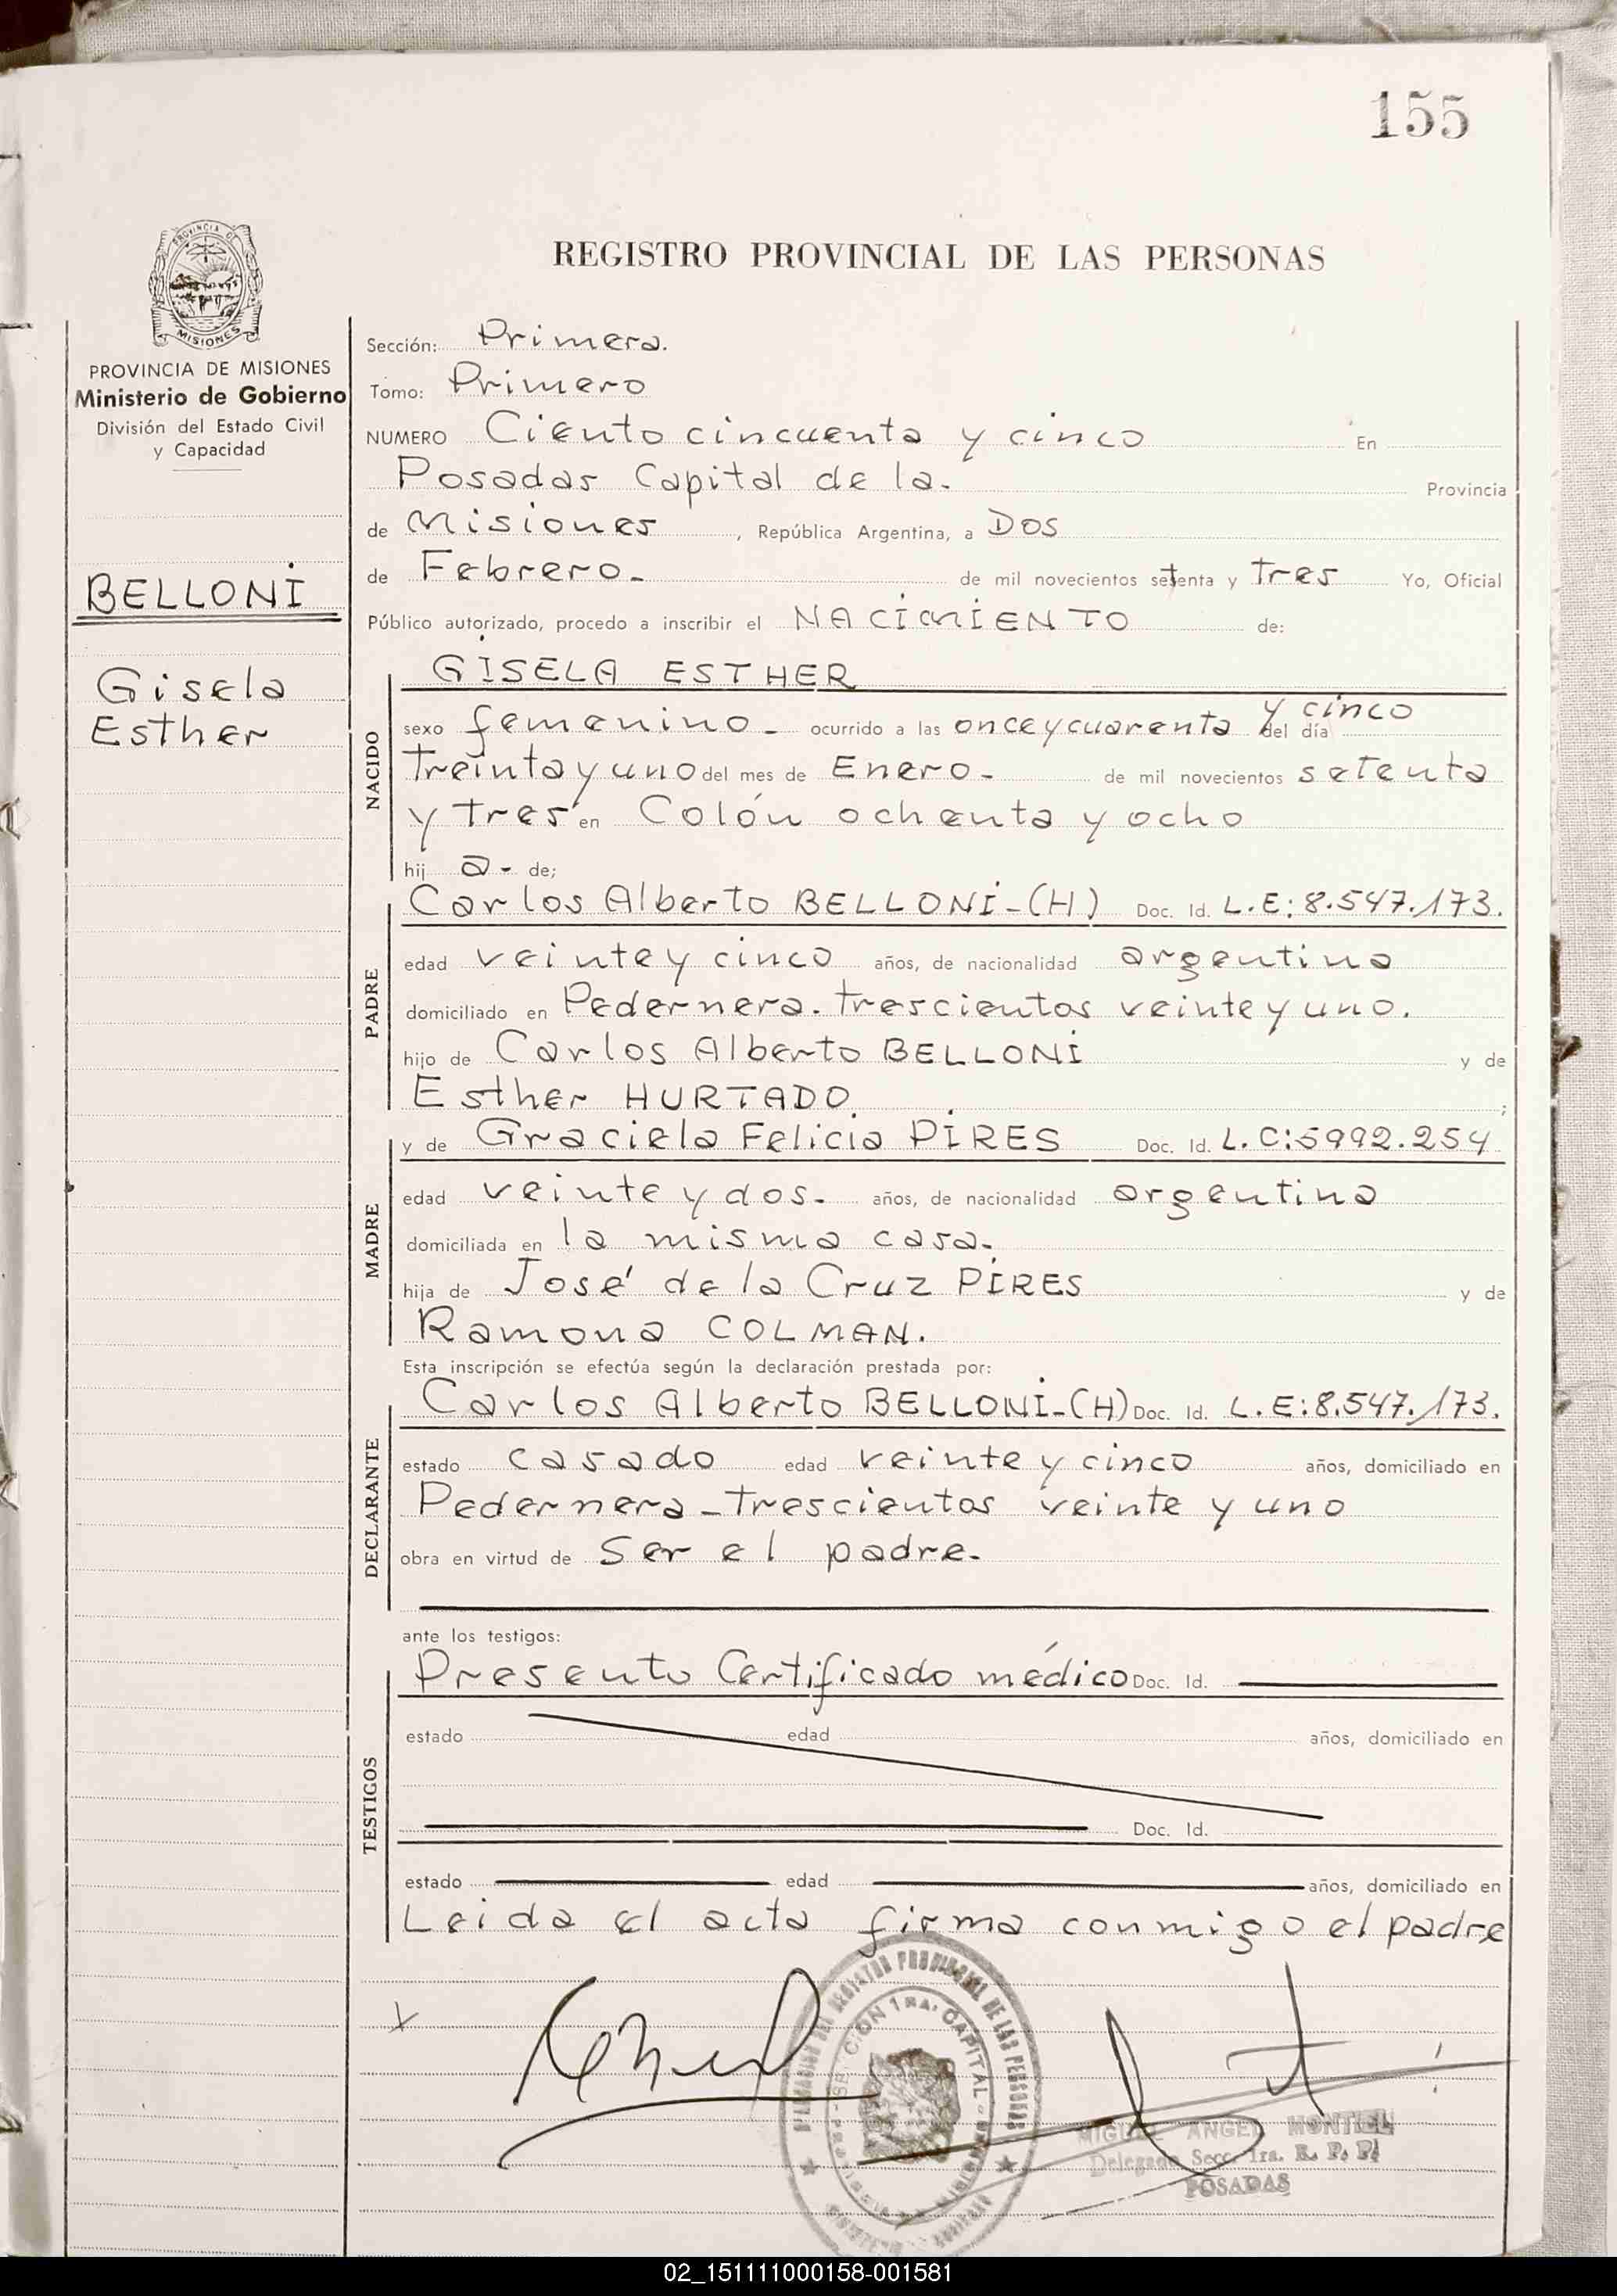 155
REGISTRO PROVINCIAL DE LAS PERSONAS
PROVINCIA DE
MISIONES
PROVINCIA DE MISIONES
Ministerio de Gobierno
División del Estado Civil
y Capacidad
BELLONI
Gisela
Esther
Sección: Primera.
Tomo: Primero
NUMERO Ciento cincuenta y cinco En
Posadas Capital de la. Provincia
de Misiones, República Argentina, a DOS
de Febrero- de mil novecientos setenta y tres Yo, Oficial
Público autorizado, procedo a inscribir el NACIMIENTO de:
GISELA ESTHER
NACIDO
sexo femenino- ocurrido a las once y cuarenta y cinco del día
treinta y uno del mes de Enero- de mil novecientos setenta
y tres en Colón ochenta y ocho
hij a- de;
PADRE
Carlos Alberto BELLONI-(H) Doc. Id. L.E: 8.547.173.
edad veinte y cinco años, de nacionalidad argentina
domiciliado en Pedernera. trescientos veinte y uno.
hijo de Carlos Alberto BELLONI y de
Esther HURTADO. ;
MADRE
y de Graciela Felicia PIRES Doc. Id. L.C:5992.254
edad veinte y dos- años, de nacionalidad argentina
domiciliada en la misma casa-
hija de José de la Cruz PIRES y de
Ramona COLMAN.
Esta inscripción se efectúa según la declaración prestada por:
DECLARANTE
Carlos Alberto BELLONI-(H) Doc. Id. L.E:8.547.173.
estado casado edad veinte y cinco años, domiciliado en
Pedernera-trescientos veinte y uno
obra en virtud de Ser el padre-
ante los testigos:
TESTIGOS
Presento Certificado médico Doc. Id.
estado edad años, domiciliado en
Doc. Id.
estado edad años, domiciliado en
Leida el acta firma conmigo el padre
REGISTRO PROVINCIAL DE LAS PERSONAS
SECCION 1RA. CAPITAL
MIGUEL ANGEL MONTIEL
Delegado Secc. 1ra. R. P. P.
POSADAS
02_151111000158-001581